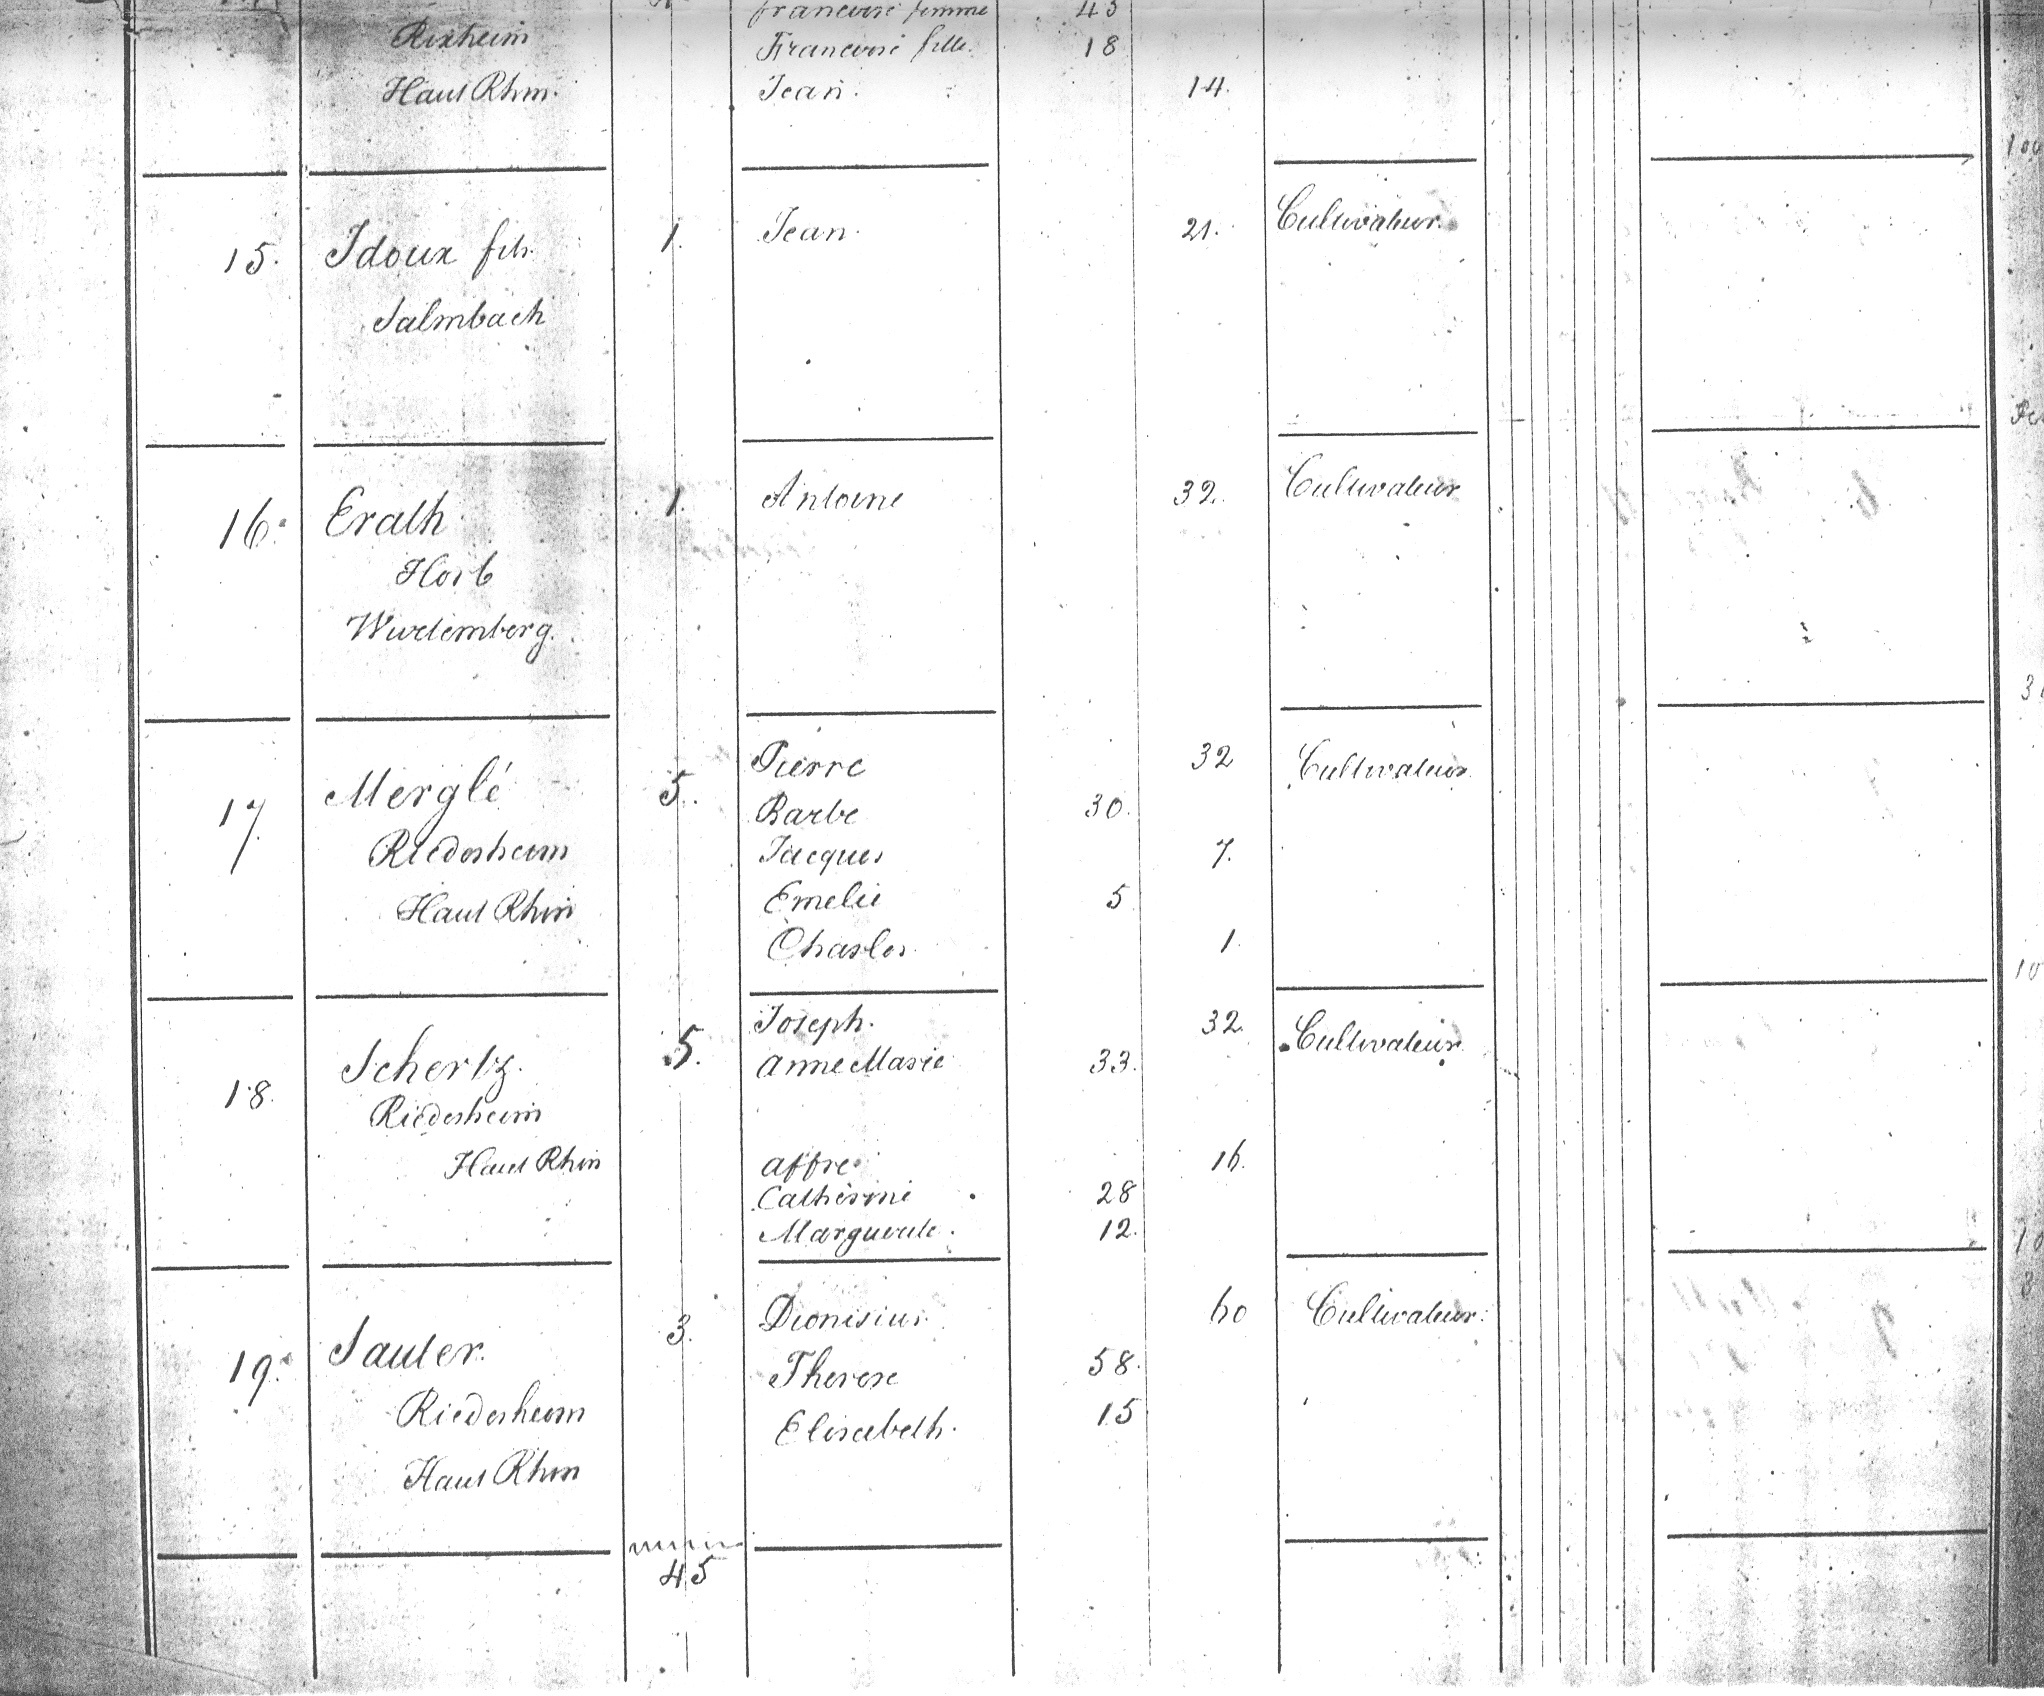 francoise femme 43
Rixheim Francoise fille 18
Haut Rhin. Jean. 14.
15. Idoux fils. 1. Jean. 21. Cultivateur.
Salmbach
16. Erath 1. Antoine 32. Cultivateur
Horb
Wurtemberg.
17. Merglé 5. Pierre 32 Cultivateur
Barbe 30.
Riedesheim Jacques 7.
Haut Rhin Emelie 5
Charles 1.
18. Schertz. 5. Joseph. 32. Cultivateur
Anne Marie 33.
Riedesheim
Haut Rhin affre 16.
Catherine 28
Marguerite. 12.
19. Sauter. 3. Dionisius 60 Cultivateur.
Therese 58.
Riedesheim Elisabeth. 15
Haut Rhin
45